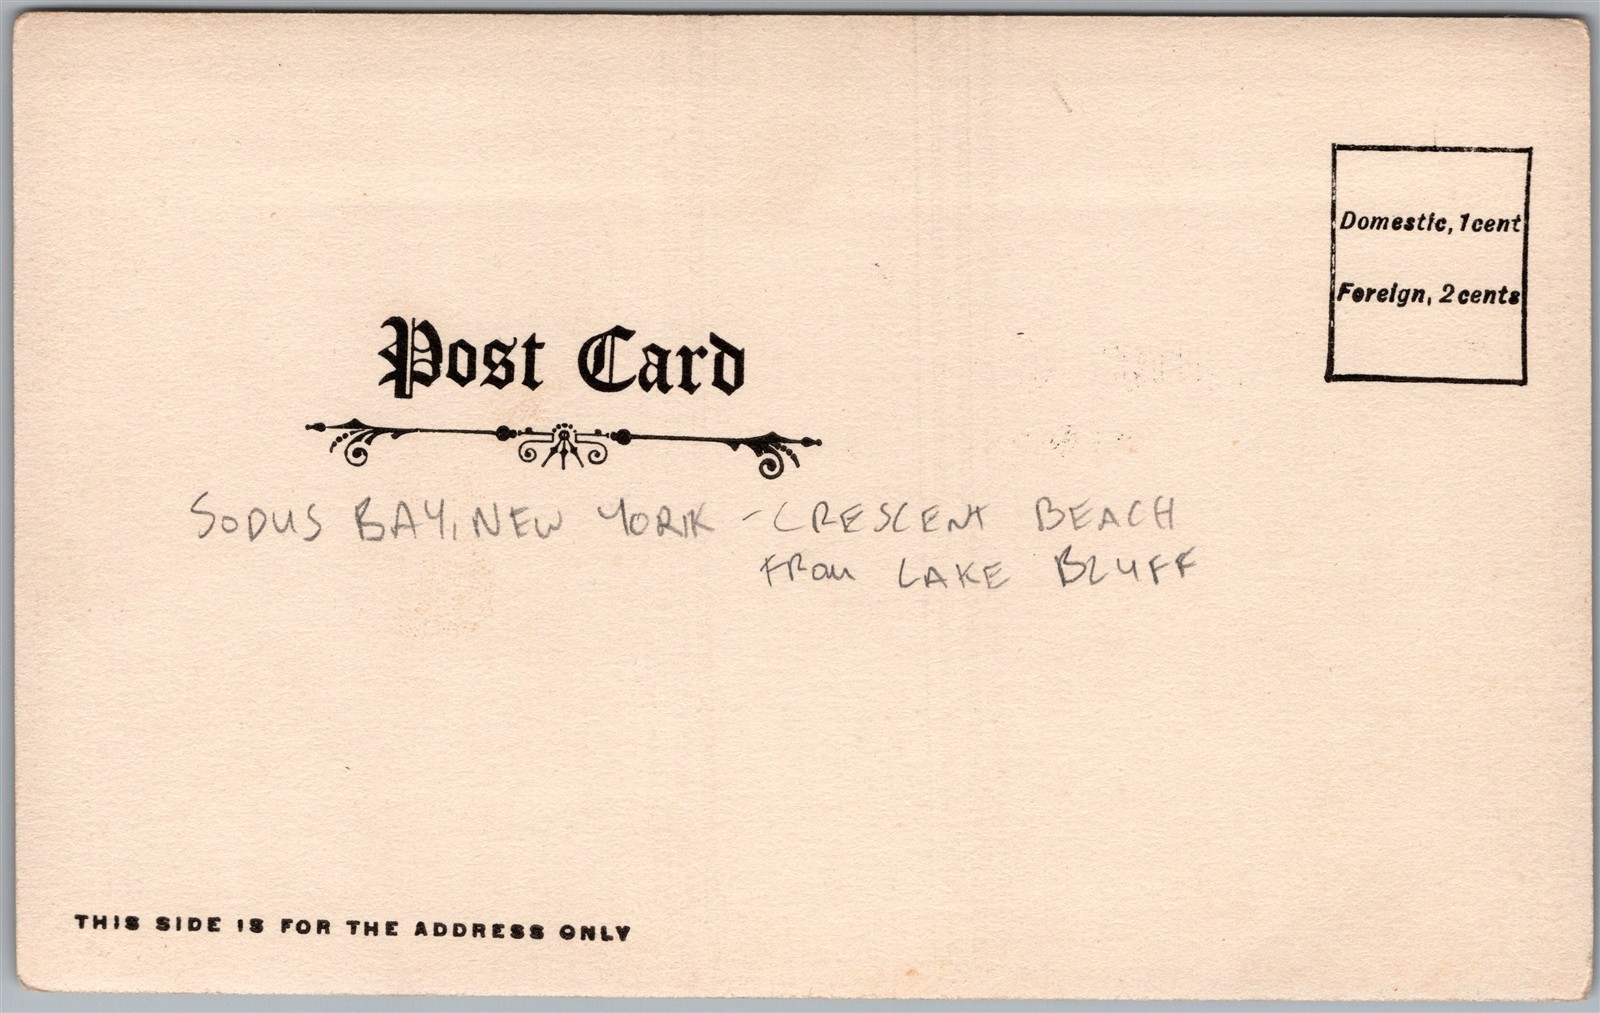 Domestic, 1 cent
Foreign, 2 cents
Post Card
SODUS BAY, NEW YORK - CRESCENT BEACH
FROM LAKE BLUFF
THIS SIDE IS FOR THE ADDRESS ONLY